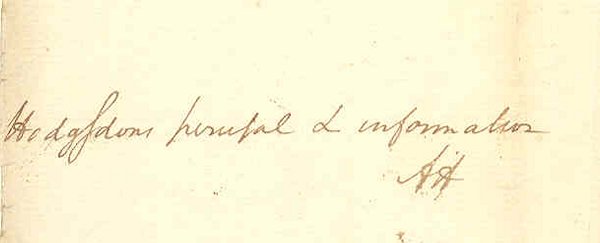 Hodgsdons perusal & information
AH